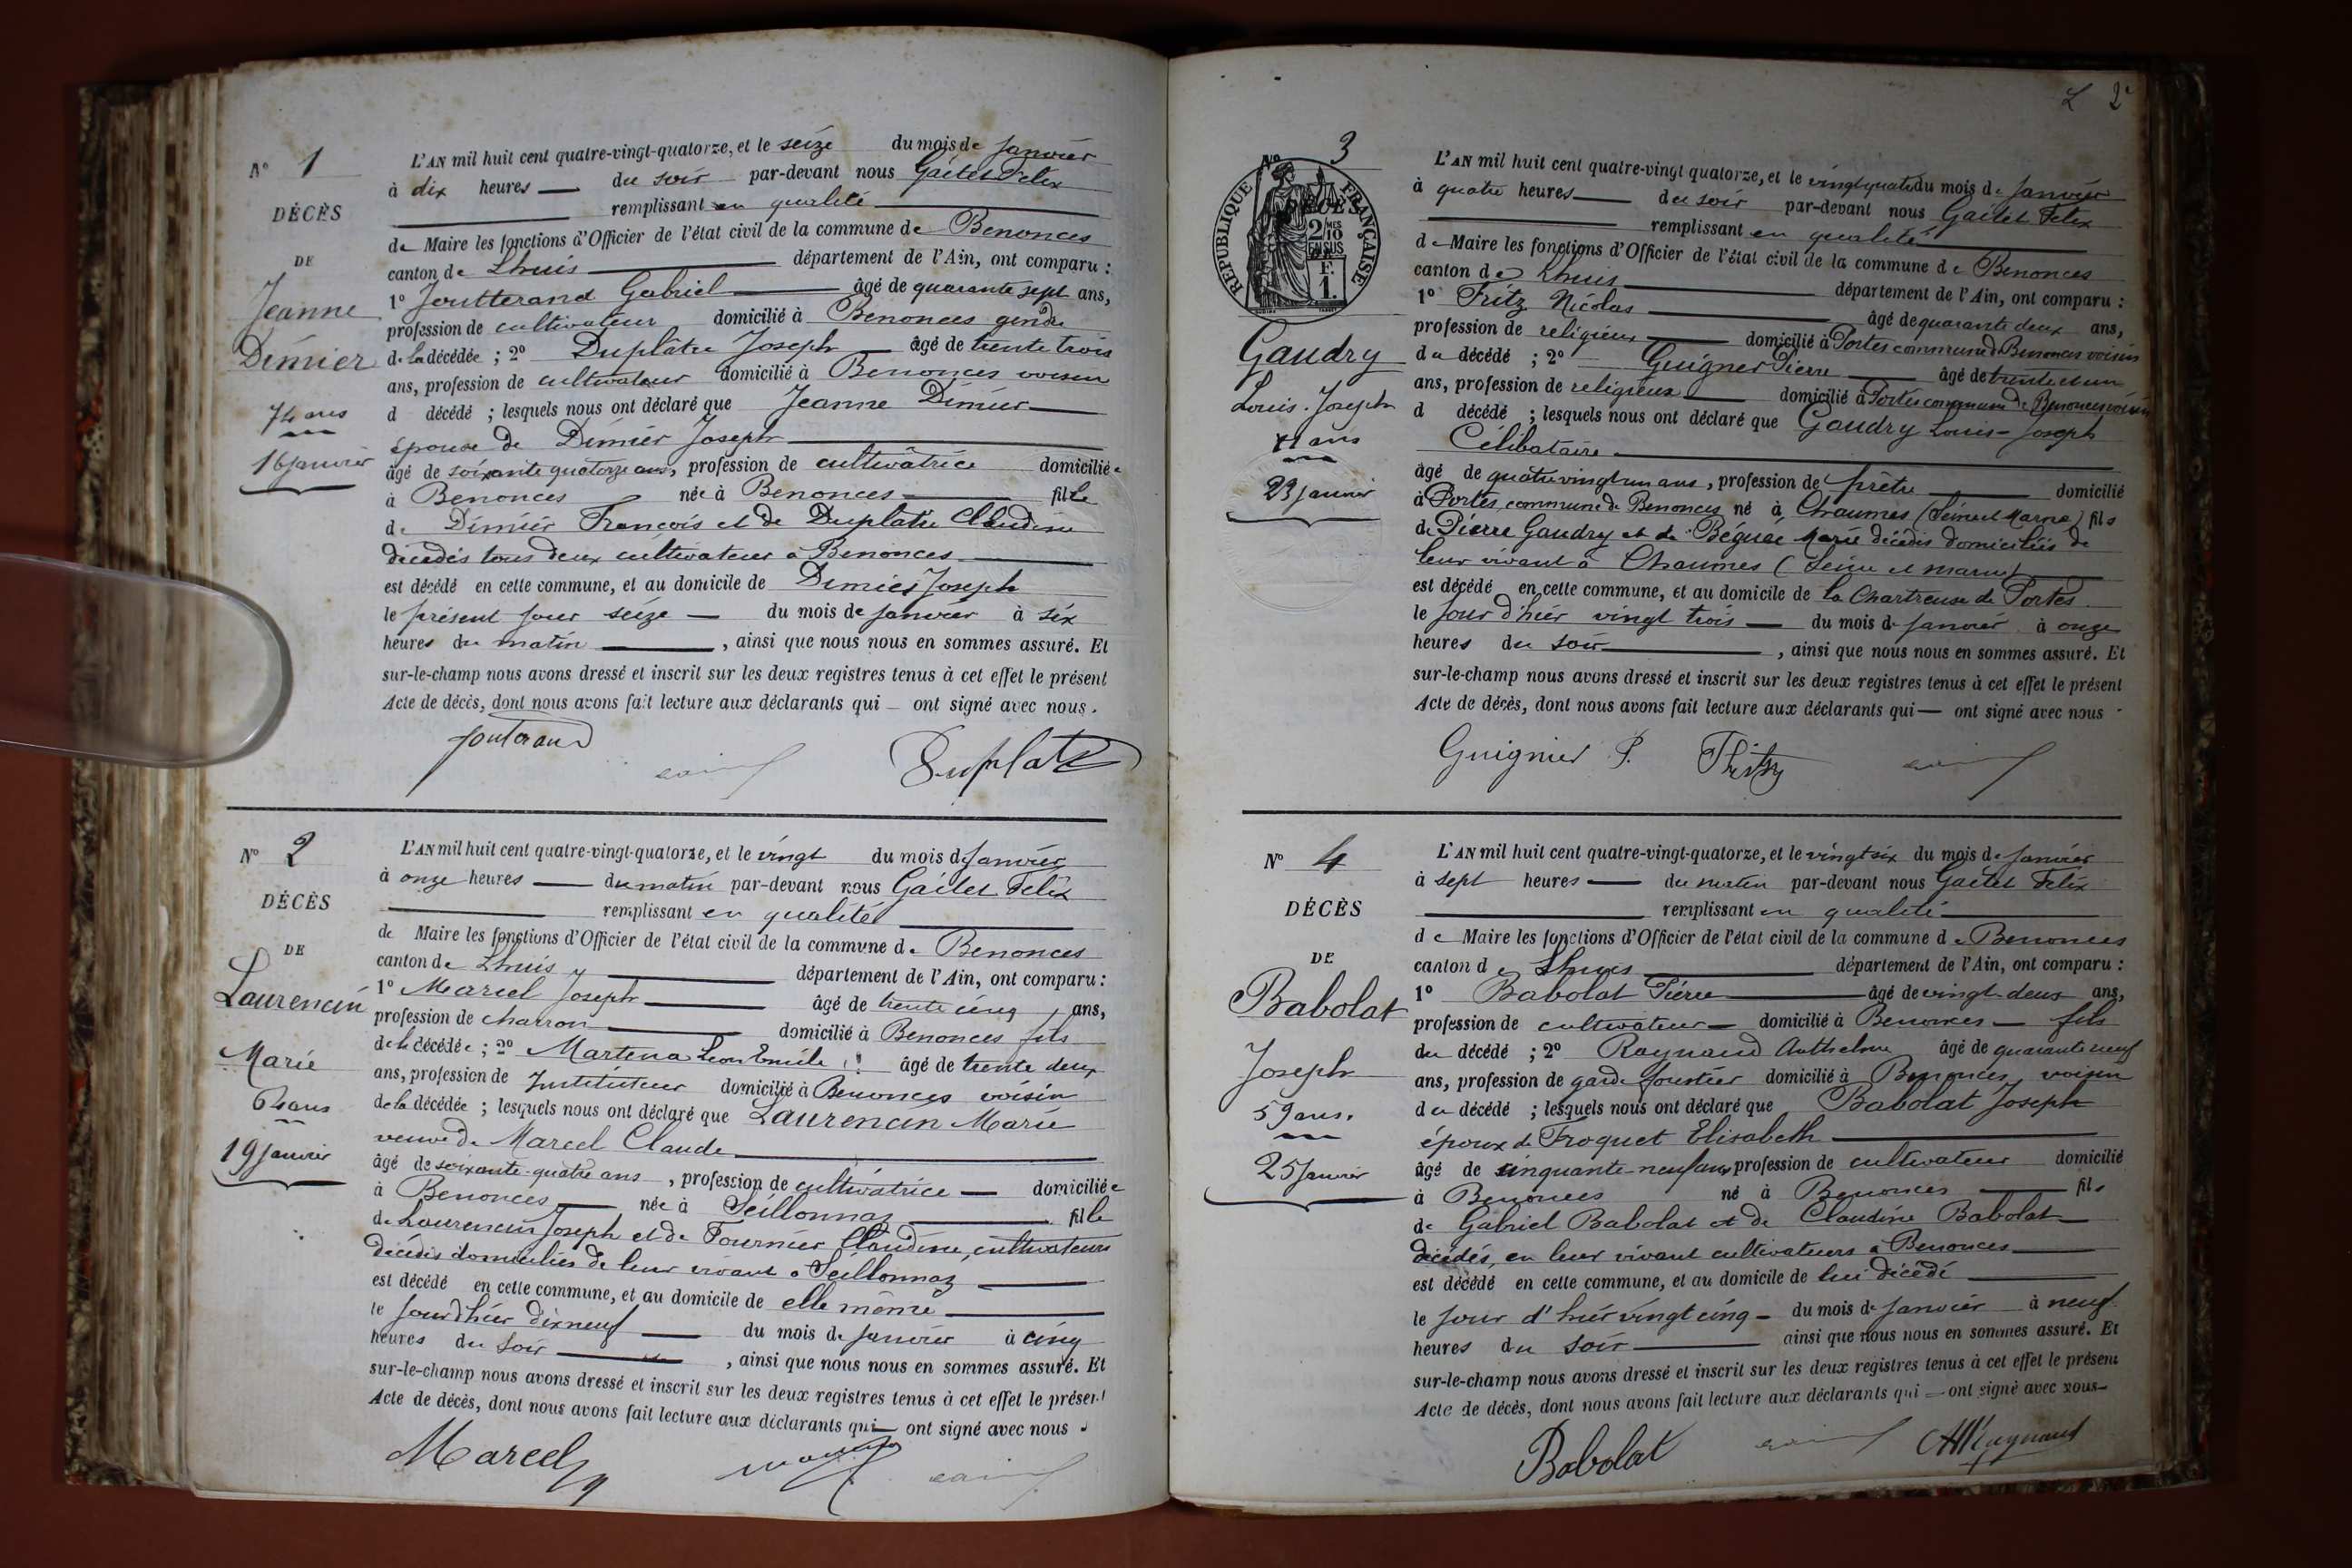 N° 1
DÉCÈS
DE
Jeanne
Dimier
74 ans
16 Janvier
L'AN mil huit cent quatre-vingt-quatorze, et le seize du mois de Janvier
à dix heures du soir par-devant nous Gaillet Félix
remplissant en qualité
de Maire les fonctions d'Officier de l'état civil de la commune de Benonces
canton de Lhuis département de l'Ain, ont comparu :
1° Joutterand Gabriel âgé de quarante sept ans,
profession de cultivateur domicilié à Benonces gendre
de la décédée ; 2° Duplâtre Joseph âgé de trente trois
ans, profession de cultivateur domicilié à Benonces voisin
d décédé ; lesquels nous ont déclaré que Jeanne Dimier
épouse de Dimier Joseph
âgé de soixante quatorze ans, profession de cultivatrice domiciliée
à Benonces née à Benonces fille
de Dimier François et de Duplatre Claudine
décédés tous deux cultivateur à Benonces
est décédé en cette commune, et au domicile de Dimier Joseph
le présent jour seize du mois de Janvier à six
heures du matin , ainsi que nous nous en sommes assuré. Et
sur-le-champ nous avons dressé et inscrit sur les deux registres tenus à cet effet le présent
Acte de décès, dont nous avons fait lecture aux déclarants qui ont signé avec nous.
Jouterand Duplatre
N° 2
DÉCÈS
DE
Laurencin
Marie
64 ans
19 Janvier
L'AN mil huit cent quatre-vingt-quatorze, et le vingt du mois de Janvier
à onze heures du matin par-devant nous Gaillet Félix
remplissant en qualité
de Maire les fonctions d'Officier de l'état civil de la commune de Benonces
canton de Lhuis département de l'Ain, ont comparu :
1° Marcel Joseph âgé de trente cinq ans,
profession de charron domicilié à Benonces fils
de la décédée ; 2° Martena Léon Emile âgé de trente deux
ans, profession de Instituteur domicilié à Benonces voisin
de la décédée ; lesquels nous ont déclaré que Laurencin Marie
veuve de Marcel Claude
âgé de soixante-quatre ans , profession de cultivatrice domiciliée
à Benonces née à Seillonnaz fille
de Laurencin Joseph et de Fournier Claudine, cultivateurs
décédés domiciliés de leur vivant à Seillonnaz
est décédé en cette commune, et au domicile de elle même
le jour d'hier dix neuf du mois de Janvier à cinq
heures du soir , ainsi que nous nous en sommes assuré. Et
sur-le-champ nous avons dressé et inscrit sur les deux registres tenus à cet effet le présent
Acte de décès, dont nous avons fait lecture aux déclarants qui ont signé avec nous.
Marcel
2e
N° 3
RÉPUBLIQUE FRANÇAISE
2/10 MES
EN SUS
F.
1.
DÉCÈS
Gaudry
Louis-Joseph
81 ans
23 Janvier
L'AN mil huit cent quatre-vingt quatorze, et le vingt quatre du mois de Janvier
à quatre heures du soir par-devant nous Gaillet Félix
remplissant en qualité
de Maire les fonctions d'Officier de l'état civil de la commune de Benonces
canton de Lhuis département de l'Ain, ont comparu :
1° Fritz Nicolas âgé de quarante deux ans,
profession de religieux domicilié à Portes commune de Benonces voisin
du décédé ; 2° Guigner Pierre âgé de trente et un
ans, profession de religieux domicilié à Portes commune de Benonces voisin
d décédé ; lesquels nous ont déclaré que Gaudry Louis-Joseph
Célibataire
âgé de quatre vingt un ans, profession de prêtre domicilié
à Portes, commune de Benonces né à Chaumes (Seine et Marne) fils
de Pierre Gaudry et de Béguée Marie décédés domiciliés de
leur vivant à Chaumes (Seine et marne)
est décédé en cette commune, et au domicile de la Chartreuse de Portes
le jour d'hier vingt trois du mois de Janvier à onze
heures du soir , ainsi que nous nous en sommes assuré. Et
sur-le-champ nous avons dressé et inscrit sur les deux registres tenus à cet effet le présent
Acte de décès, dont nous avons fait lecture aux déclarants qui ont signé avec nous
Guignier P.
N° 4
DÉCÈS
DE
Babolat
Joseph
59 ans.
25 Janvier
L'AN mil huit cent quatre-vingt-quatorze, et le vingt six du mois de Janvier
à sept heures du matin par-devant nous Gaillet Félix
remplissant en qualité
de Maire les fonctions d'Officier de l'état civil de la commune de Benonces
canton de Lhuis département de l'Ain, ont comparu :
1° Babolat Pierre âgé de vingt-deux ans,
profession de cultivateur domicilié à Benonces fils
du décédé ; 2° Raynaud Anthelme âgé de quarante neuf
ans, profession de garde forestier domicilié à Benonces voisin
du décédé ; lesquels nous ont déclaré que Babolat Joseph
époux de Froquet Elisabeth
âgé de cinquante-neuf ans, profession de cultivateur domicilié
à Benonces né à Benonces fils
de Gabriel Babolat et de Claudine Babolat
décédés, en leur vivant cultivateurs à Benonces
est décédé en cette commune, et au domicile de lui décédé
le jour d'hier vingt cinq du mois de Janvier à neuf
heures du soir ainsi que nous nous en sommes assuré. Et
sur-le-champ nous avons dressé et inscrit sur les deux registres tenus à cet effet le présent
Acte de décès, dont nous avons fait lecture aux déclarants qui ont signé avec nous
Babolat